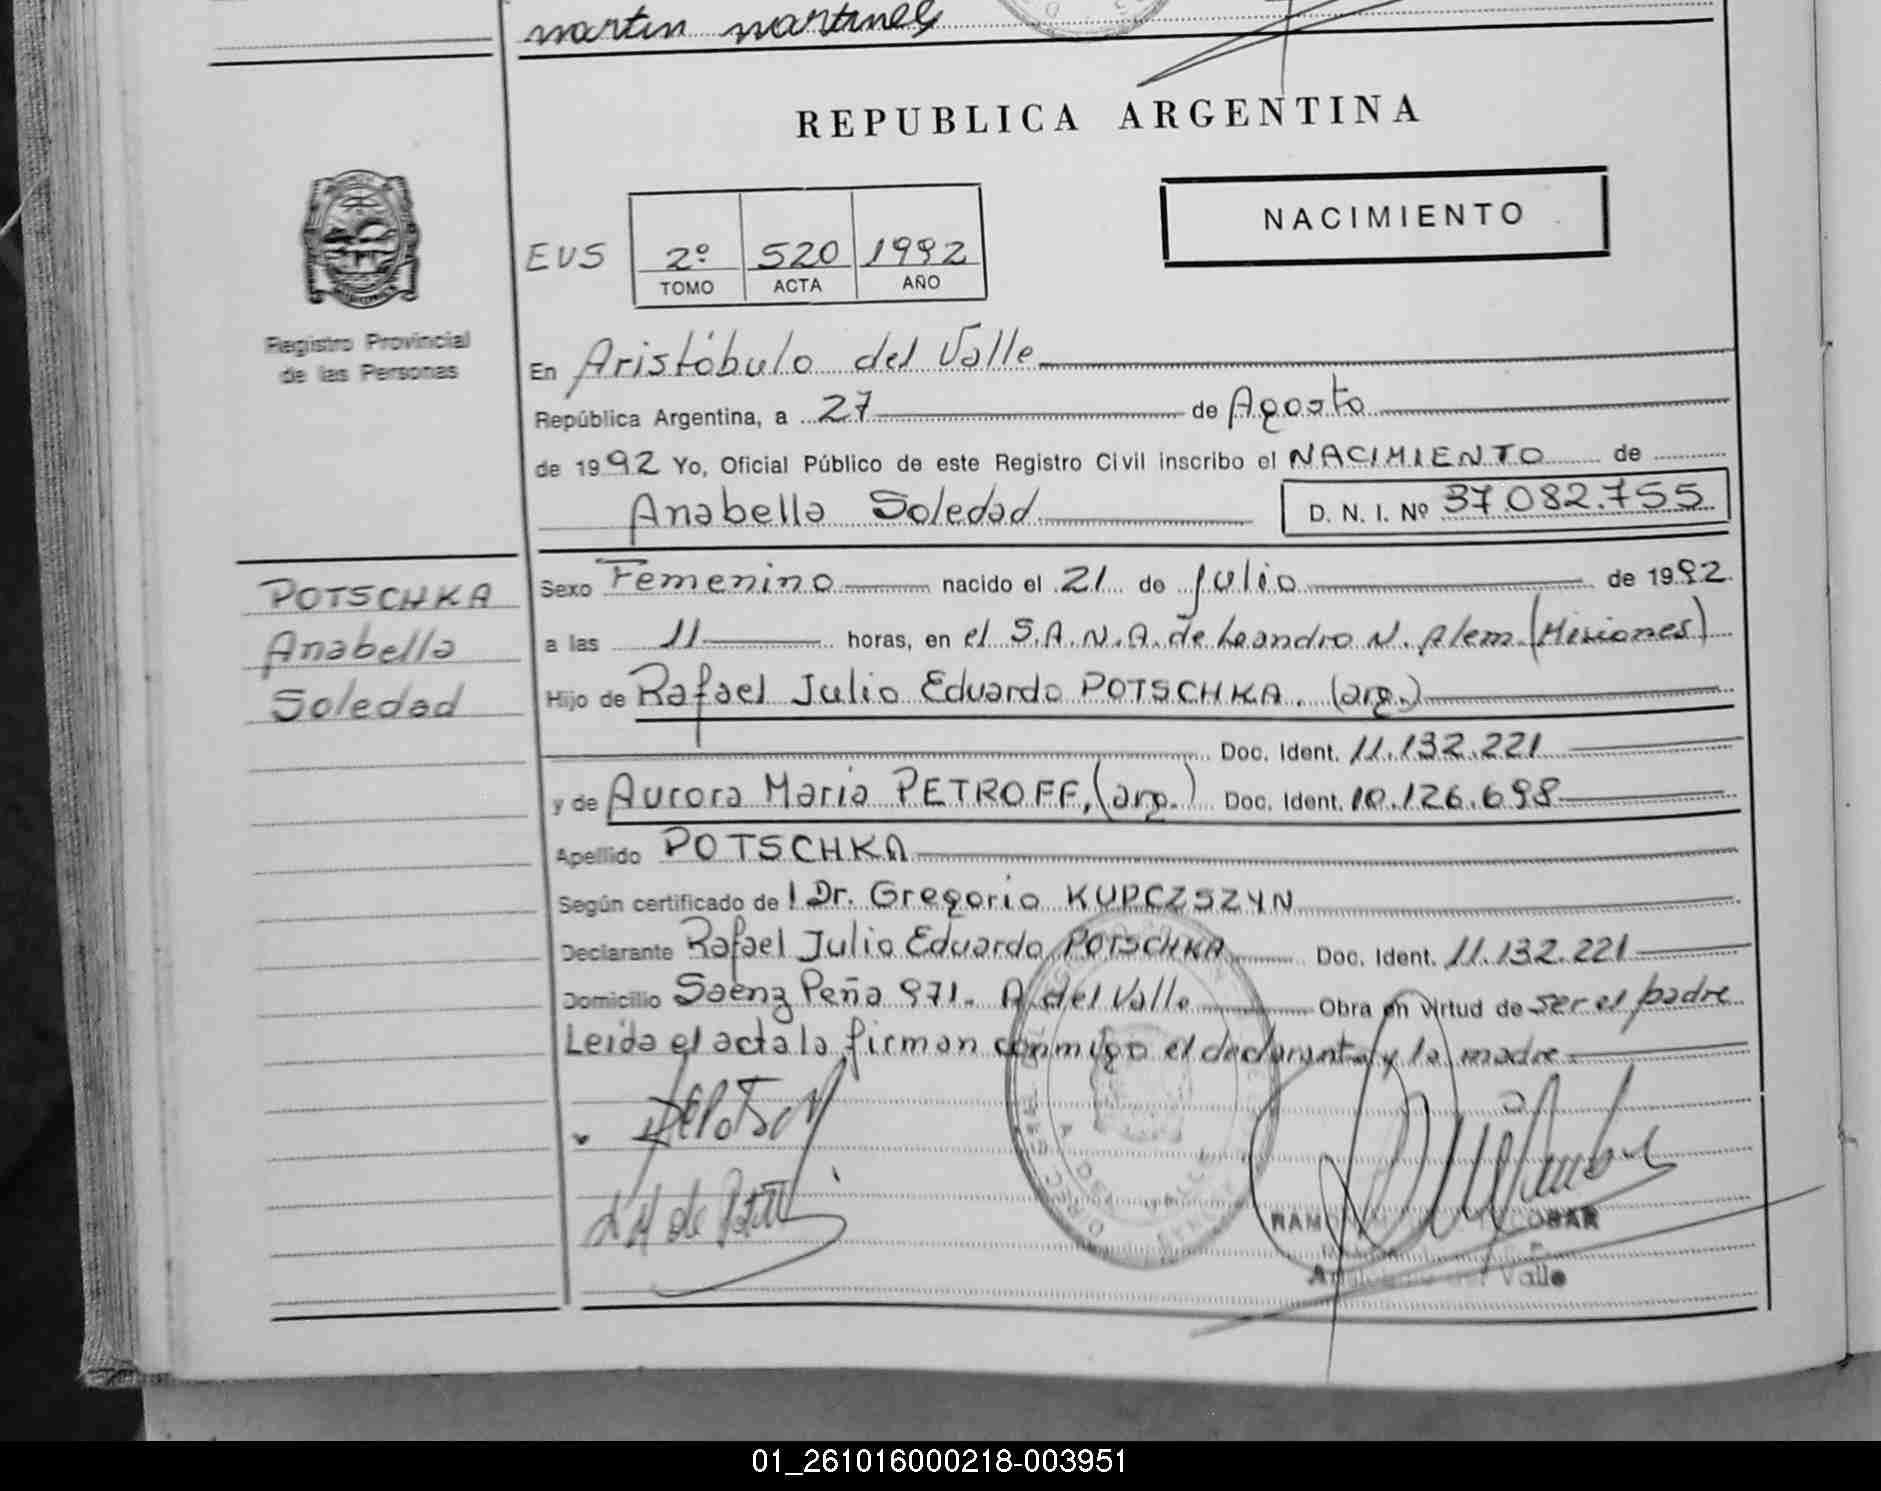 martin martines
REPUBLICA ARGENTINA
NACIMIENTO
EUS 2º 520 1992
TOMO ACTA AÑO
Registro Provincial
de las Personas
En Aristóbulo del Valle
República Argentina, a 27 de Agosto
de 1992 Yo, Oficial Público de este Registro Civil inscribo el NACIMIENTO de
Anabella Soledad D. N. I. Nº 37.082.755
POTSCHKA
Anabella
Soledad
Sexo Femenino nacido el 21 de Julio de 1992
a las 11 horas, en el S.A.N.A. de Leandro N. Alem (Misiones)
Hijo de Rafael Julio Eduardo POTSCHKA. (arg.)
Doc. Ident. 11.132.221
y de Aurora Maria PETROFF, (arg.) Doc. Ident. 10.126.698
Apellido POTSCHKA
Según certificado de l Dr. Gregorio KUPCZSZYN
Declarante Rafael Julio Eduardo POTSCHKA Doc. Ident. 11.132.221
Domicilio Saenz Peña 971. A. del Valle Obra en virtud de ser el padre
Leida el acta la firman conmigo el declarante y la madre
ESCOBAR
del Valle
01_261016000218-003951